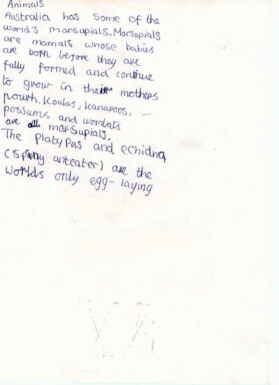 Animals
Australia has some of the
world's marsupials. Marsupials
are mamals whose babies
are both before they are
fully formed and continue
to grow in their mothers
pouth. Koalas, kanaroos,
possums and wombats
are all marsupials.
The Platypus and echidna
(Spiny anteater) are the
worlds only egg-laying